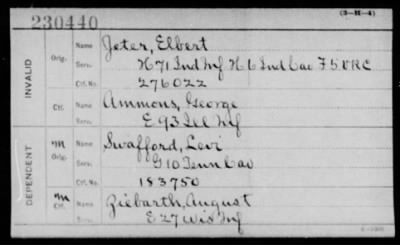 230440
(3-H-4)
INVALID
Orig. Name Jeter, Elbert
Serv. H 71 Ind Inf H 6 Ind Cav F 5 VRC
Ctf. No. 276022
Ctf. Name Ammons, George
Serv. E 93 Ill Inf
DEPENDENT
m Orig. Name Swafford, Levi
Serv. G 10 Tenn Cav
Ctf. No. 183750
m Ctf. Name Ziebarth, August
Serv. E 27 Wis Inf